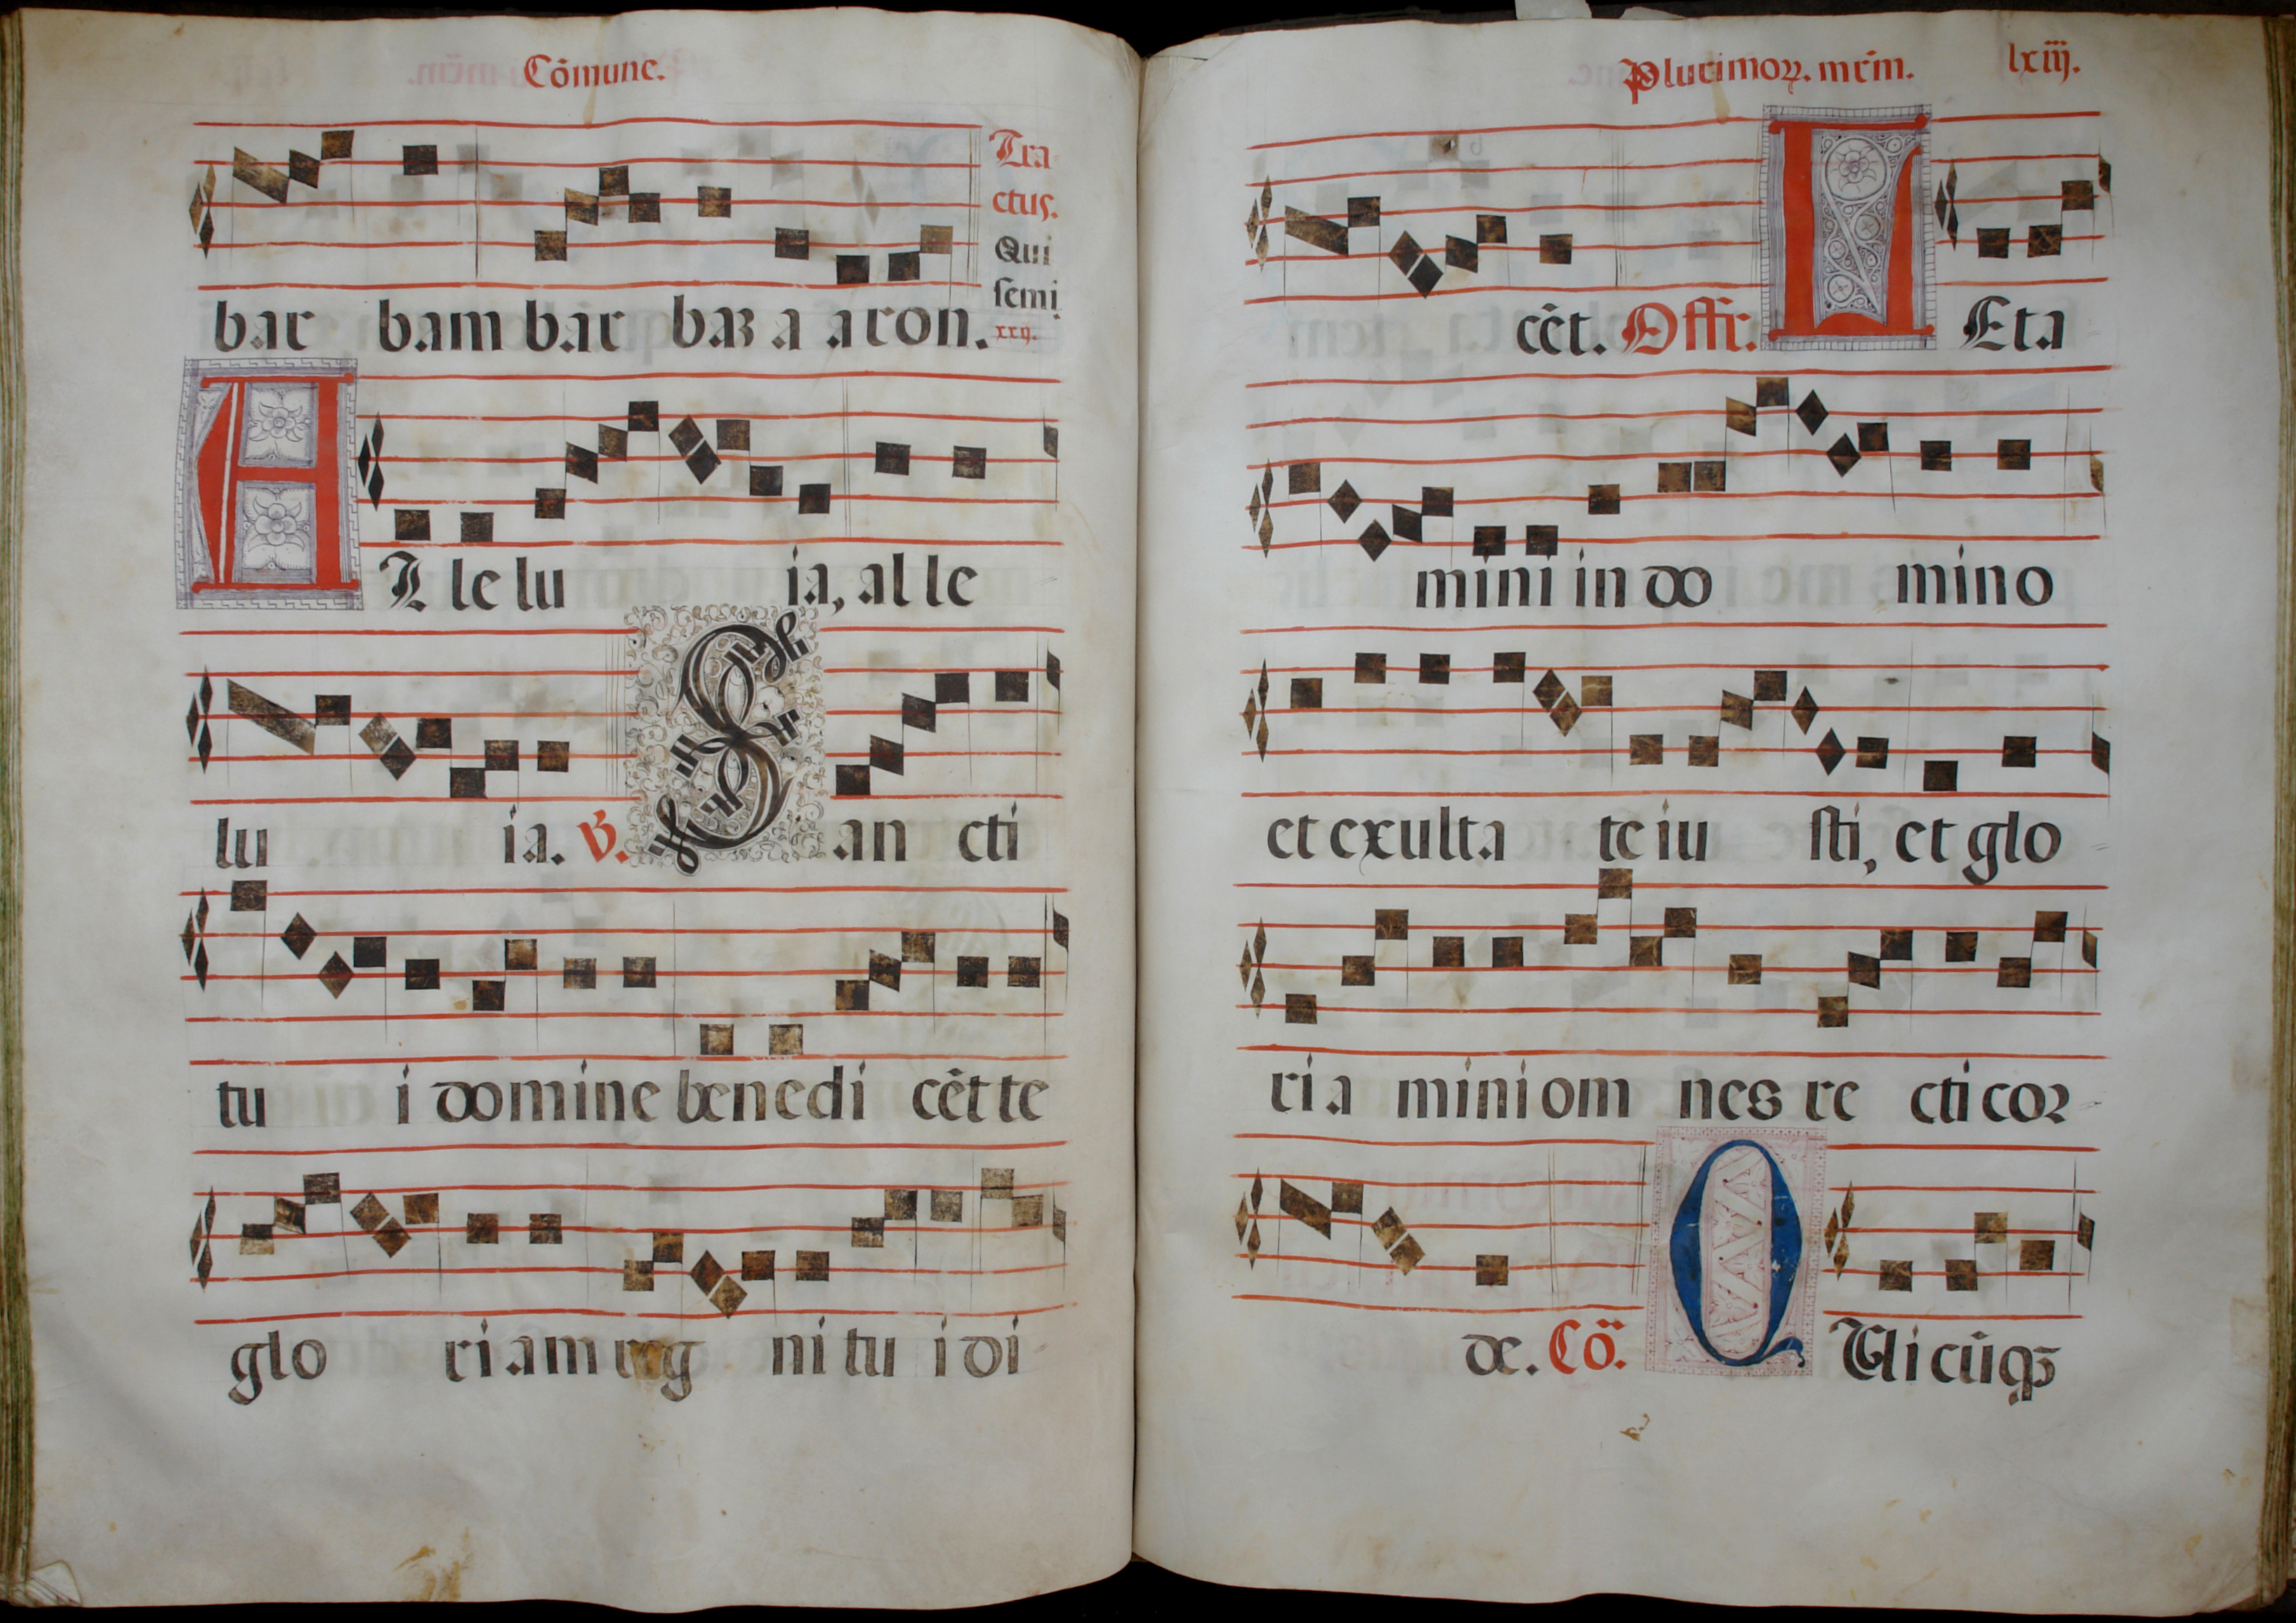 Cõmune.
Tra
ctus.
Qui
semi.
xxij.
bar bam bar baʒ a aron.
A Llelu ia, alle
lu ia. ℣. San cti
tu i domine benedi cẽt te
glo riam reg ni tu i di
Plurimoꝝ. mr̃m. lxiij.
cẽt. Offr. L Eta
mini in do mino
et exulta te iu sti, et glo
ria mini om nes re cti coꝛ
de. Cõ. Q Ui cũqꝫ